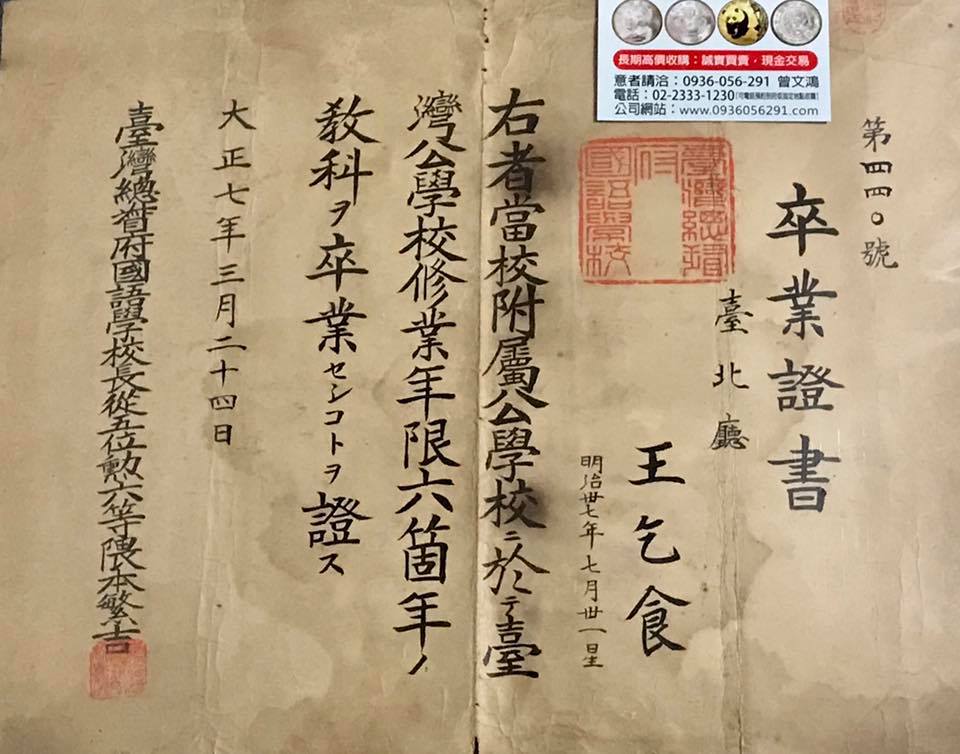 長期高價收購：誠實買賣，現金交易
意者請洽：0936-056-291 曾文鴻
電話：02-2333-1230(可電話預約到府或指定地點收購)
公司網站：www.0936056291.com
第四四〇號
卒業證書
臺北廳
王乞食
明治卅七年七月卅一日生
臺灣總督
府
國語學校
右者當校附屬公學校ニ於テ臺
灣公學校修業年限六箇年ノ
教科ヲ卒業セシコトヲ證ス
大正七年三月二十四日
臺灣總督府國語學校長從五位勲六等隈本繁吉